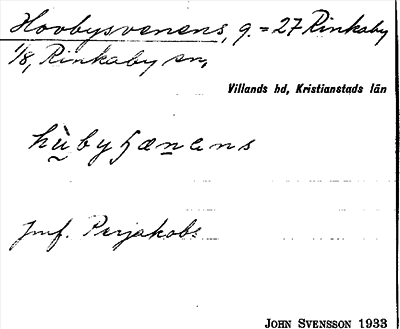 Hovbysvenens, g. = 27 Rinkaby
1/8, Rinkaby sn,
Villands hd, Kristianstads län
Jmf. Perjakobs
JOHN SVENSSON 1933